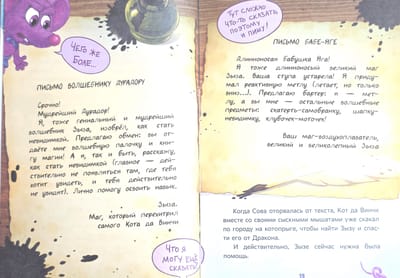 ЧЕГО ЖЕ
БОЛЕ...
ПИСЬМО ВОЛШЕБНИКУ ДУРАДОРУ
Срочно!
Мудрейший Дурадор!
Я, тоже гениальный и мудрейший
волшебник Зыза, изобрёл, как стать
невидимкой. Предлагаю обмен: вы от-
даёте мне волшебную палочку и кни-
гу магии! А я, так и быть, расскажу,
как стать невидимкой (главное — дей-
ствительно не появляться там, где тебя
хотят увидеть, и тебя действительно
не увидят). Лично помогу освоить навык.
Зыза.
Маг, который перехитрил
самого Кота да Винчи
ЧТО Я
МОГУ ЕЩЁ
СКАЗАТЬ?
ТУТ СЛОЖНО
ЧТО-ТО СКАЗАТЬ,
ПОЭТОМУ
И ПИШУ!
ПИСЬМО БАБЕ-ЯГЕ
Длинноносая Бабушка Яга!
Я тоже длинноносый великий маг
Зыза. Ваша ступа устарела! Я приду-
мал реактивную метлу (летает, но только
вниз...). Предлагаю бартер: я — мет-
лу, а вы мне — остальные волшебные
предметы: скатерть-самобранку, шапку-
невидимку, клубочек-моточек!
Ваш маг-воздухоплаватель,
великий и великолепный Зыза
Когда Сова оторвалась от текста, Кот да Винчи
вместе со своими сыскными мышатами уже скакал
по городу на котопрыге, чтобы найти Зызу и спас-
ти его от Дракона.
И действительно, Зызе сейчас нужна была
помощь.